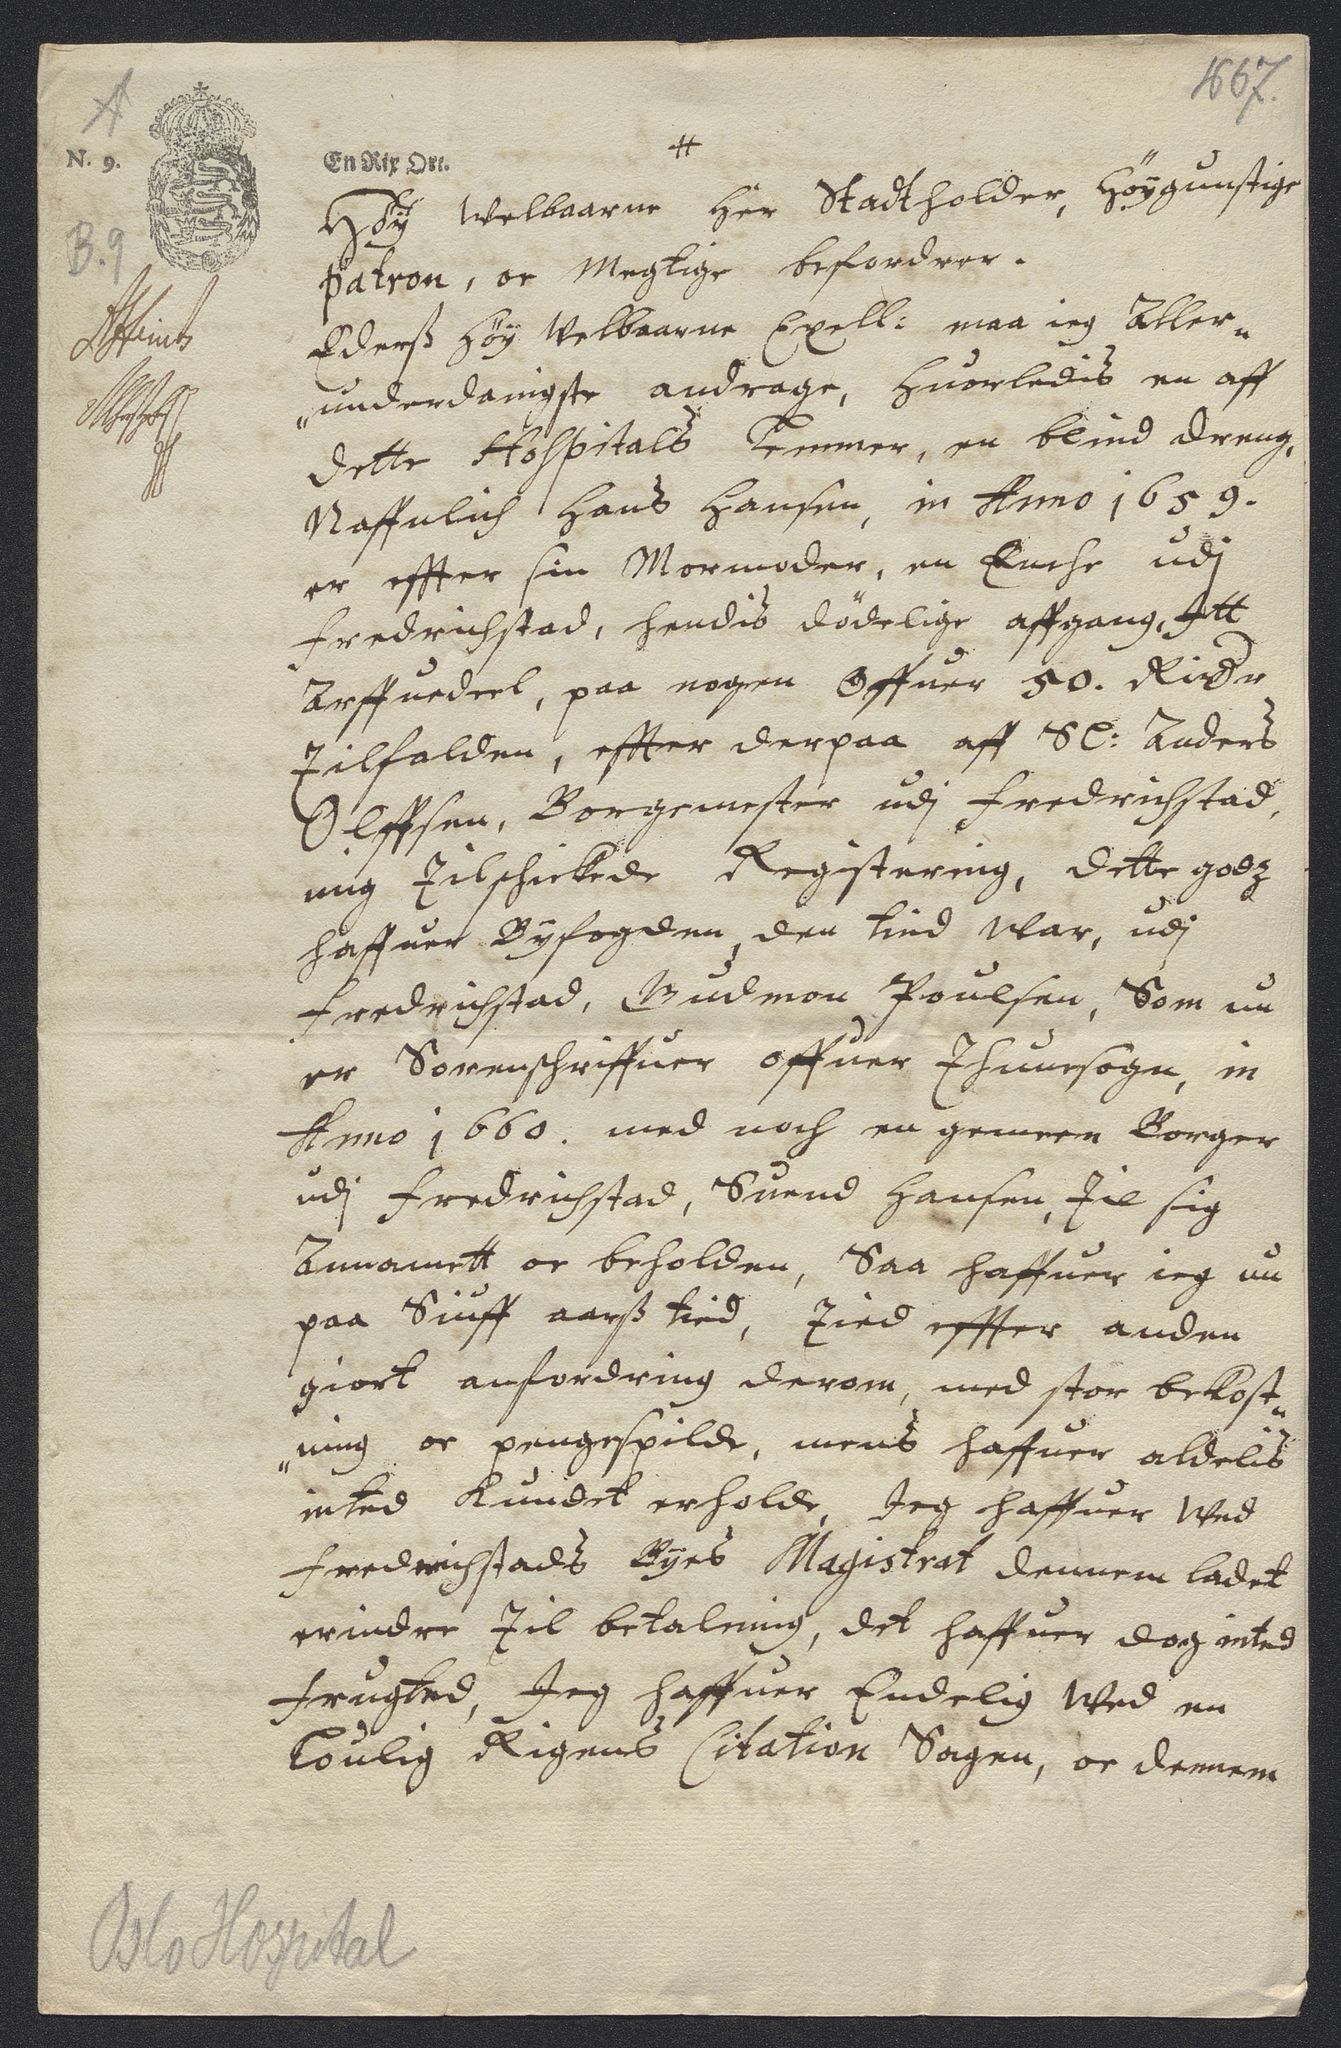 1667.
A
N. 9.
En Rix Ort.
B. 9
Høy Welbaarne Her Stadtholder, Høygunstige
Patron, oc Megtige befordrer.
Ederß Høy Welbaarne Excell: maa ieg Aller-
underdanigste andrage, huorledis en aff
dette Hospitals Lemmer, en blind dreng,
Naffnlich Hans Hansen, in Anno 1659.
er effter sin Mormoder, en Enche udj
fredrichstad, hendis dödelige affgang, Itt
Arffuedeel, paa nogen Offuer 50. Rixdr
Tilfalden, effter derpaa aff Sl: Anders
Olffsen, Borgemester udj fredrichstad,
mig Tilschickede Registering, dette godz
haffuer Byfogden, den tiid War, udj
fredrichstad, Gudmon Poulsen, Som nu
er Sorenschriffuer offuer Thunesogn, in
Anno 1660. med noch en gemeen Borger
udj fredrichstad, Suend Hansen, Til sig
Annamett oc beholden, Saa haffuer ieg nu
paa Siuff aarß tiid, Tied effter anden
giort anfordring derom, med stor bekost-
ning oc pengespilde, mens haffuer aldelis
inted kundet erholde, Jeg haffuer Wed
fredrichstads Byes Magistrat dennem ladet
erindre Til betalning, det haffuer dog inted
frugted, Jeg haffuer Endelig Wed en
Loulig Rigens Citation Sagen, oc dennem
Oslo Hospital